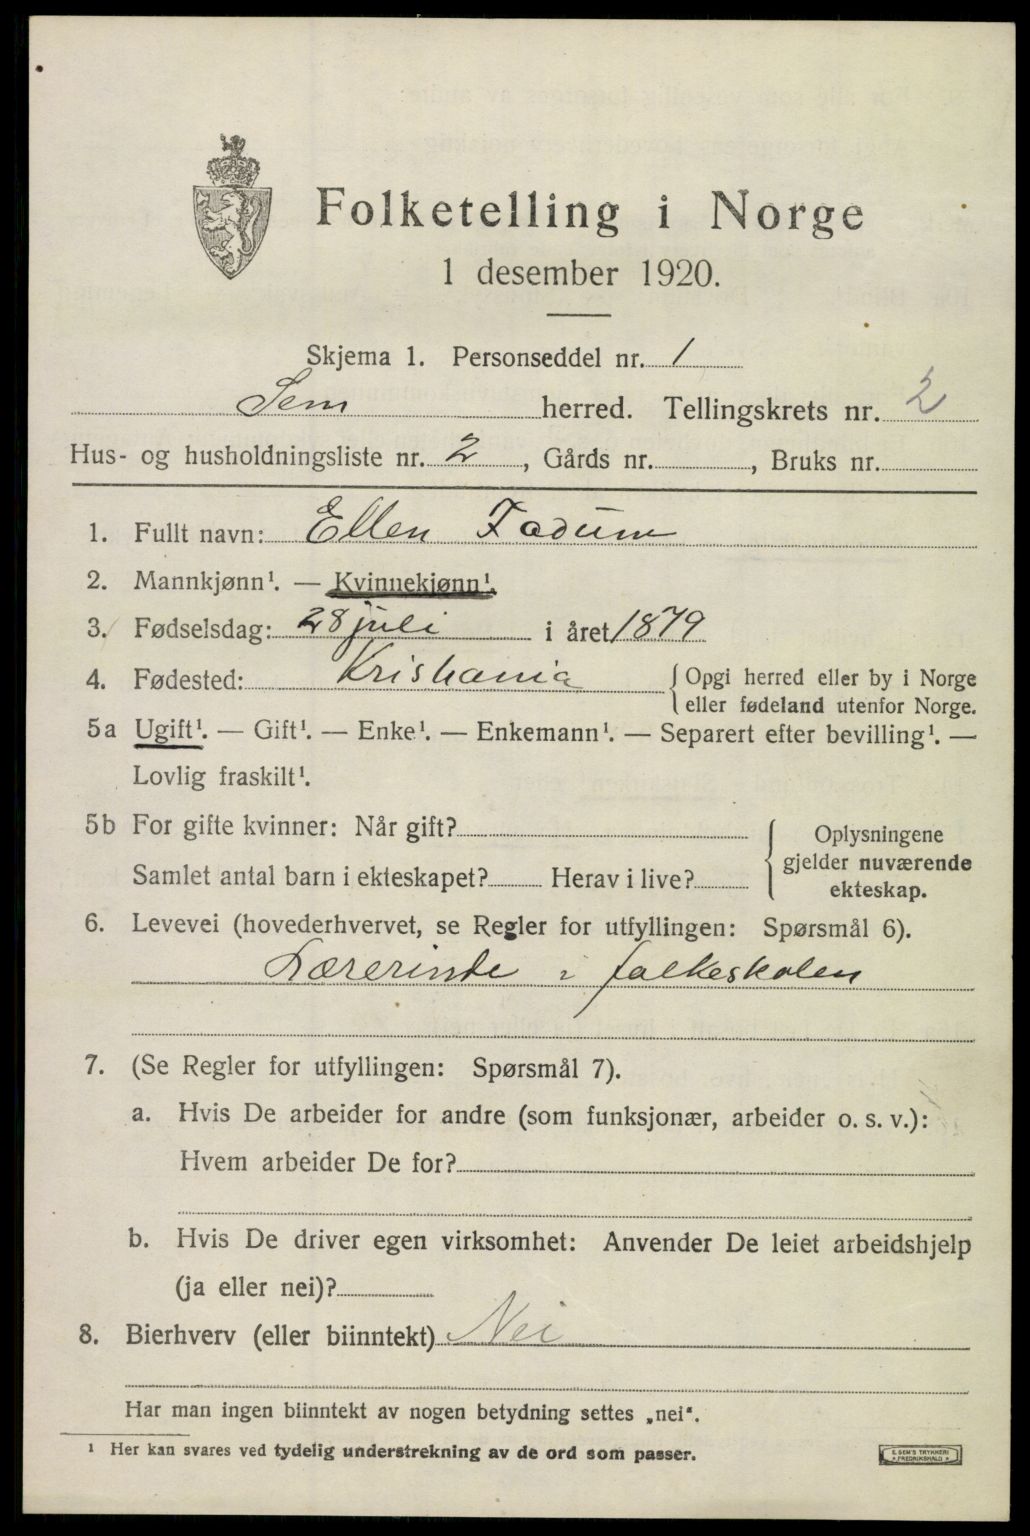 Folketelling i Norge
1 desember 1920.
Skjema 1. Personseddel nr. 1
Sem herred. Tellingskrets nr. 2
Hus- og husholdningsliste nr. 2, Gårds nr. , Bruks nr.
1. Fullt navn: Ellen Fadum
2. Mannkjønn¹. — Kvinnekjønn¹.
3. Fødselsdag: 28 juli i året 1879
4. Fødested: Kristiania { Opgi herred eller by i Norge
eller fødeland utenfor Norge.
5a Ugift¹. — Gift¹. — Enke¹. — Enkemann¹. — Separert efter bevilling¹. —
Lovlig fraskilt¹.
5b For gifte kvinner: Når gift?
Samlet antal barn i ekteskapet? Herav i live?
Oplysningene
gjelder nuværende
ekteskap.
6. Levevei (hovederhvervet, se Regler for utfyllingen: Spørsmål 6).
Lærerinde i folkeskolen
7. (Se Regler for utfyllingen: Spørsmål 7).
a. Hvis De arbeider for andre (som funksjonær, arbeider o. s. v.):
Hvem arbeider De for?
b. Hvis De driver egen virksomhet: Anvender De leiet arbeidshjelp
(ja eller nei)?
8. Bierhverv (eller biinntekt) Nei
Har man ingen biinntekt av nogen betydning settes „nei".
¹ Her kan svares ved tydelig understrekning av de ord som passer.
E. SEM'S TRYKKERI
* FREDRIKSHALD *